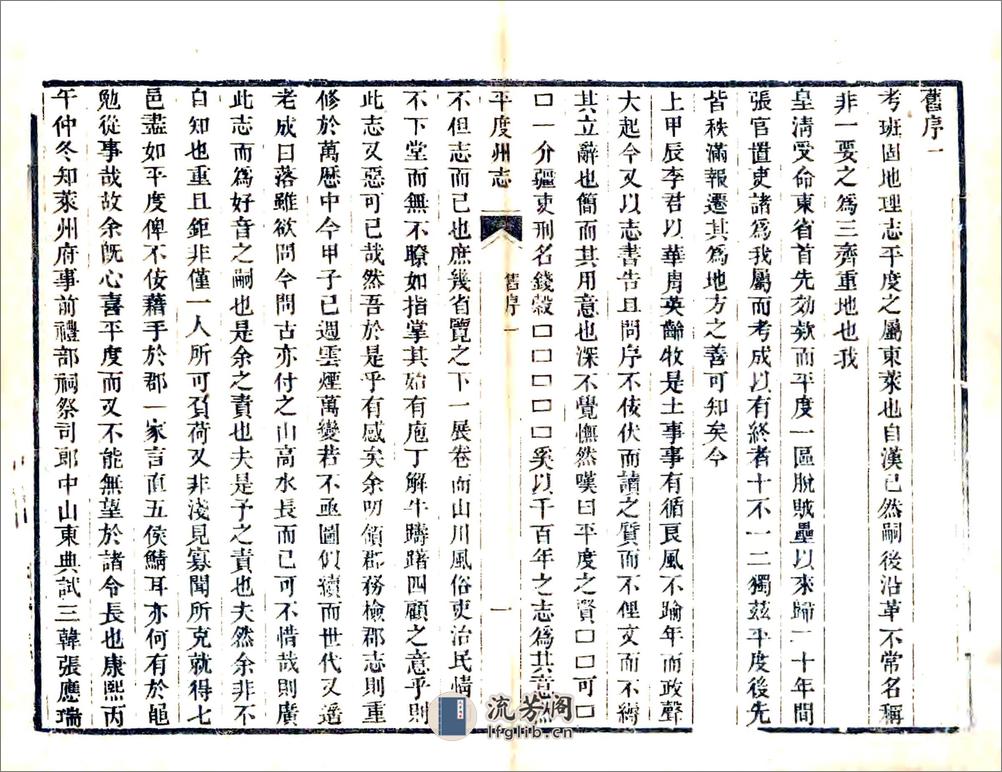 舊序一
考班固地理志平度之屬東萊也自漢已然嗣後沿革不常名稱
非一要之為三齊重地也我
皇清受命東省首先効欵而平度一區脫賊壘以來歸二十年間
張官置吏諸為我屬而考成以有終者十不一二獨茲平度後先
皆秩滿報遷其為地方之善可知矣今
上甲辰李君以華胄英齡牧是土事事有循良風不踰年而政聲
大起今又以志書告且問序不佞伏而讀之質而不俚文而不縟
其立辭也簡而其用意也深不覺憮然嘆曰平度之賢口口可口
口一分疆吏刑名錢穀口口口口口奚以千百年之志為其意
平度州志
舊序一
一
不但志而已也庶幾省覽之下一展卷而山川風俗吏治民情
不下堂而無不瞭如指掌其始有庖丁解牛躊躇四顧之意乎則
此志又惡可已哉然吾於是乎有感矣余叨領郡務檢郡志則重
修於萬曆中今甲子已週雲煙萬變若不亟圖似續而世代又遙
老成日落雖欲問今問古亦付之山高水長而已可不惜哉則廣
此志而為好音之嗣也是余之責也夫是予之責也夫然余非不
自知也重且鉅非僅一人所可負荷又非淺見寡聞所克就得七
邑盡如平度俾不佞藉手於郡一家言直五侯鯖耳亦何有於黽
勉從事哉故余旣心喜平度而又不能無望於諸令長也康熙丙
午仲冬知萊州府事前禮部祠祭司郎中山東典試三韓張應瑞
流芳閣
lfglib.cn